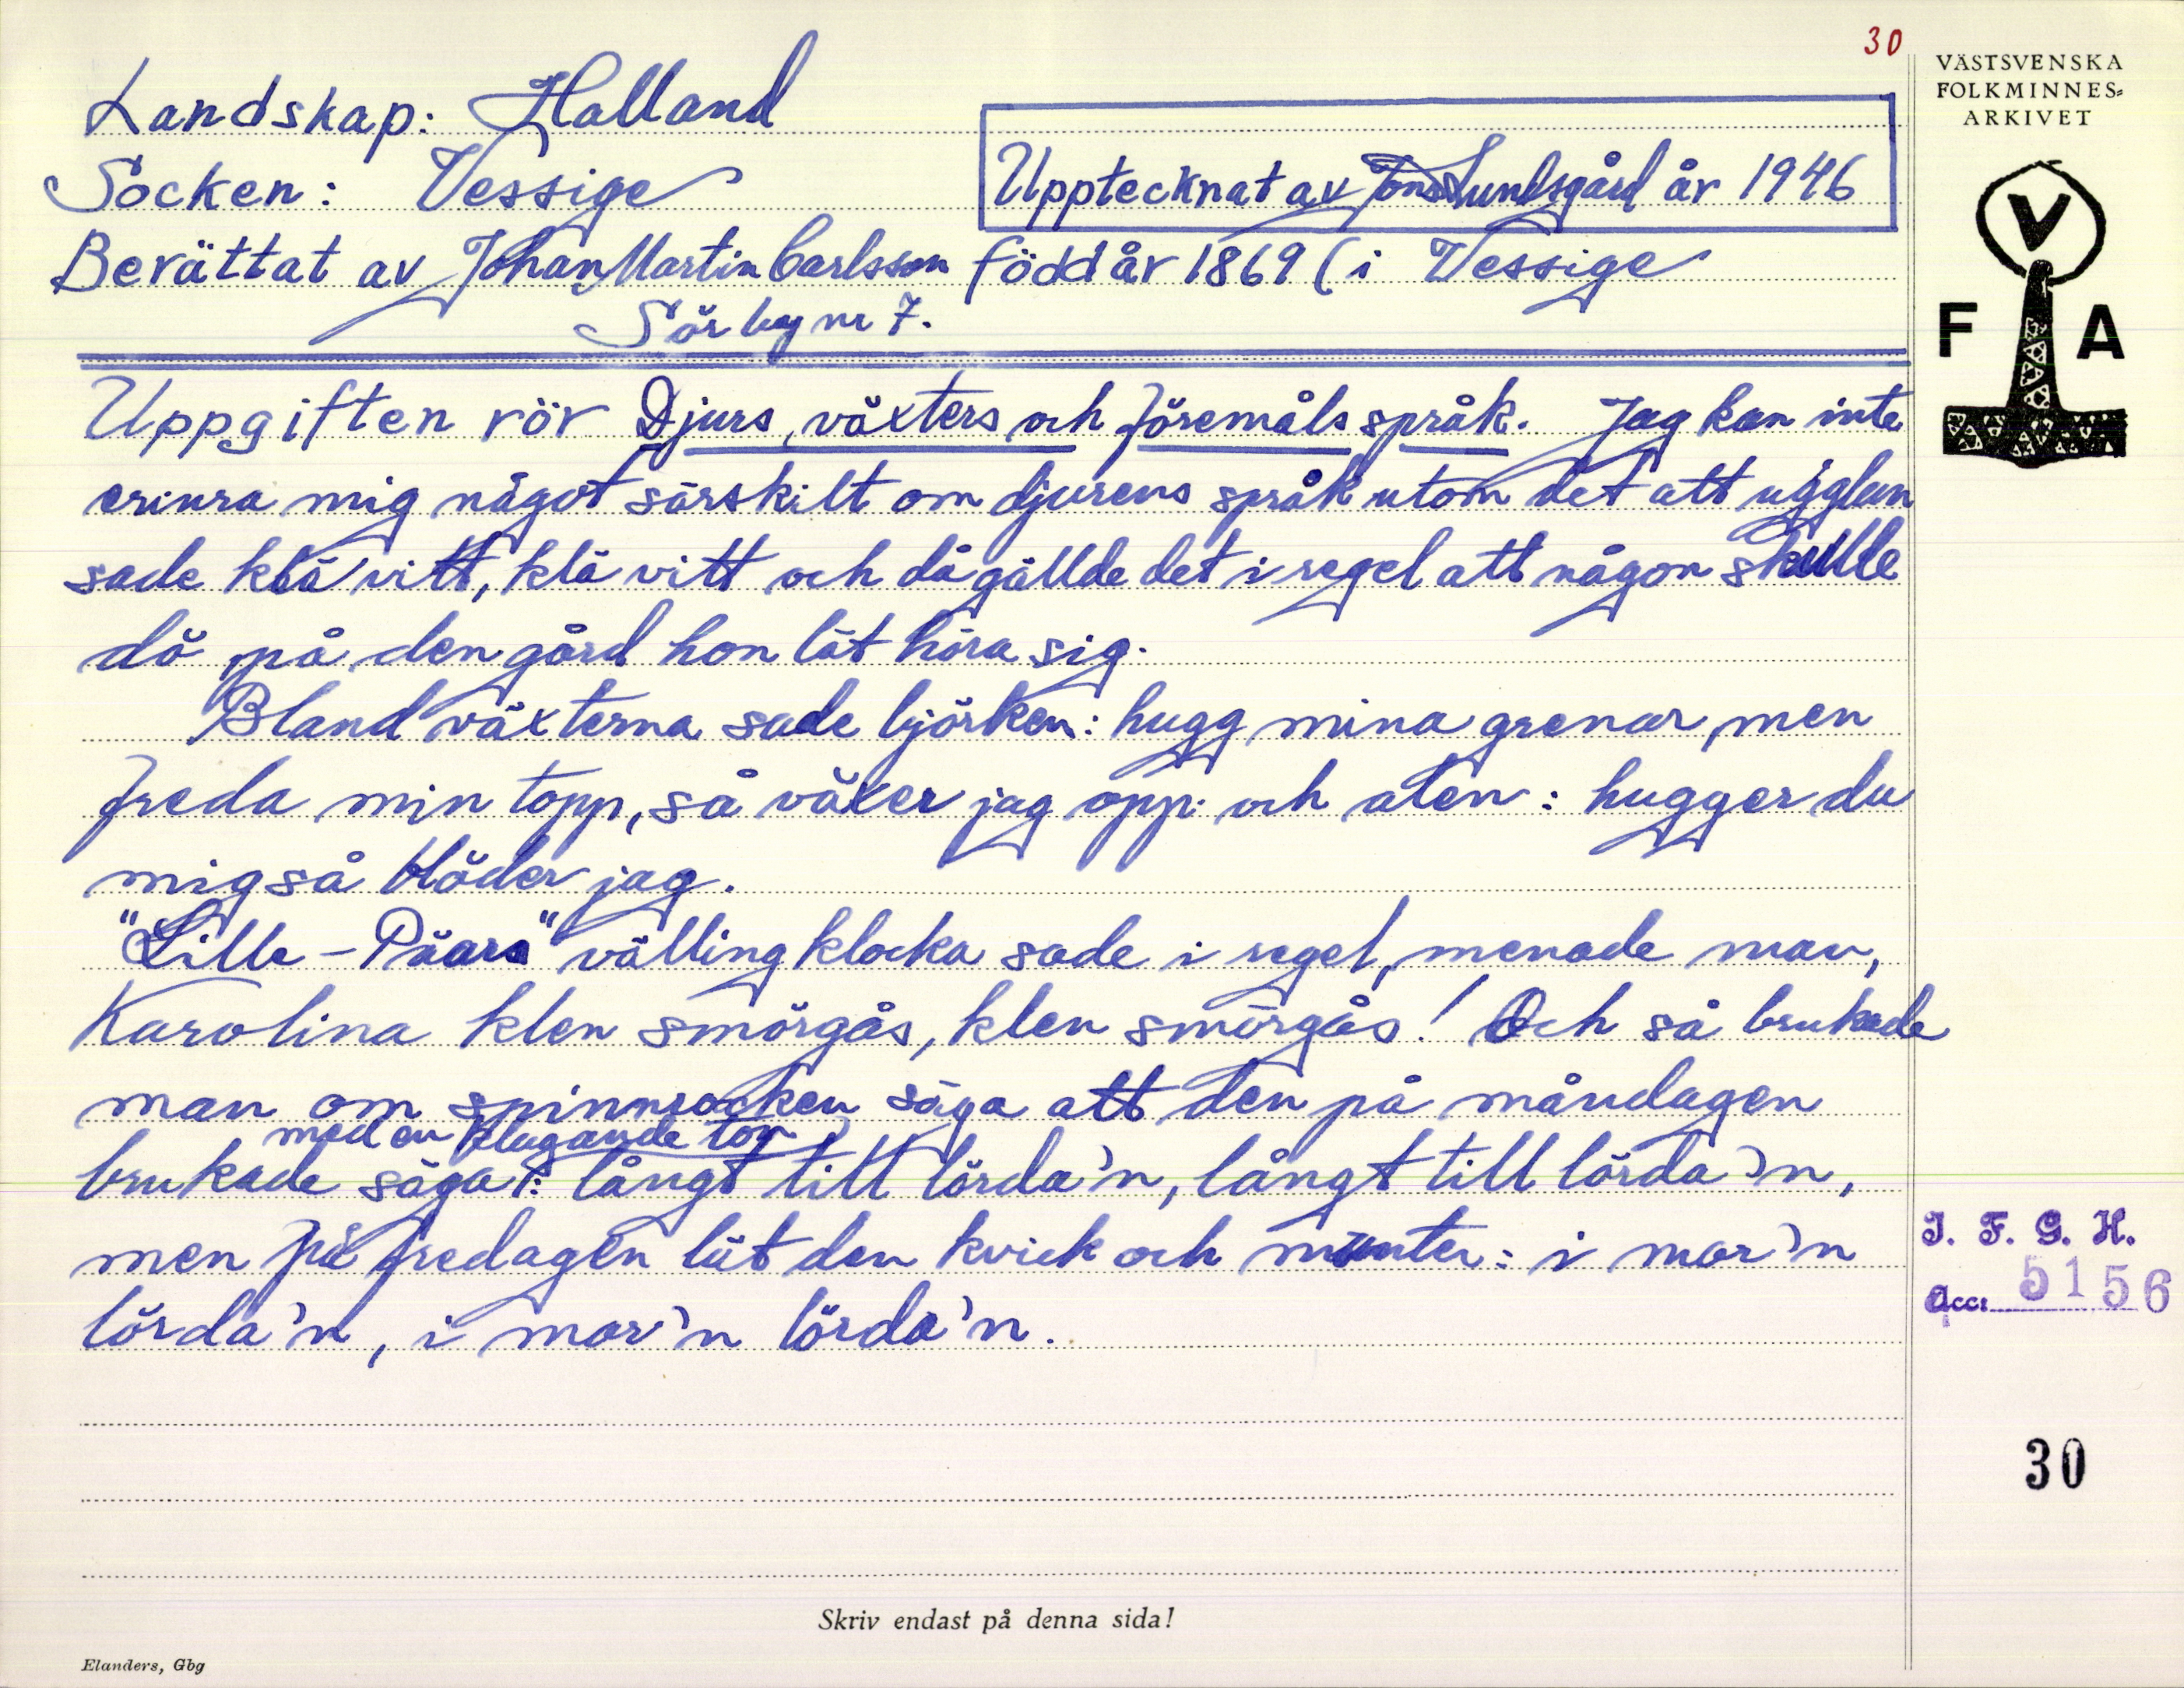 30
VÄSTSVENSKA
FOLKMINNES=
ARKIVET
V
F A
Landskap: Halland
Socken: Vessige
Upptecknat av Jöns Lundsgård år 1946
Berättat av Johan Martin Carlsson född år 1869 ( i Vessige
Sörby nr 7.
Uppgiften rör Djurs, växters och föremåls språk. Jag kan inte
erinra mig något särskilt om djurens språk utom det att ugglan
sade klä vitt, klä vitt och då gällde det i regel att någon skulle
dö på den gård hon lät höra sig.
Bland växterna sade björken: hugg mina grenar, men
freda min topp, så växer jag opp. och alen: hugger du
mig så blöder jag.
"Lille-Päars" vällingklocka sade i regel, menade man,
Karolina klen smörgås, klen smörgås! Och så brukade
man om spinnrocken säga att den på måndagen
med en klagande ton
brukade säga: långt till lörda'n, långt till lörda'n,
men på fredagen lät den kvick och munter: i mor'n
lörda'n, i mor'n lörda'n.
I. F. G. H.
Acc: 5156
30
Skriv endast på denna sida!
Elanders, Gbg